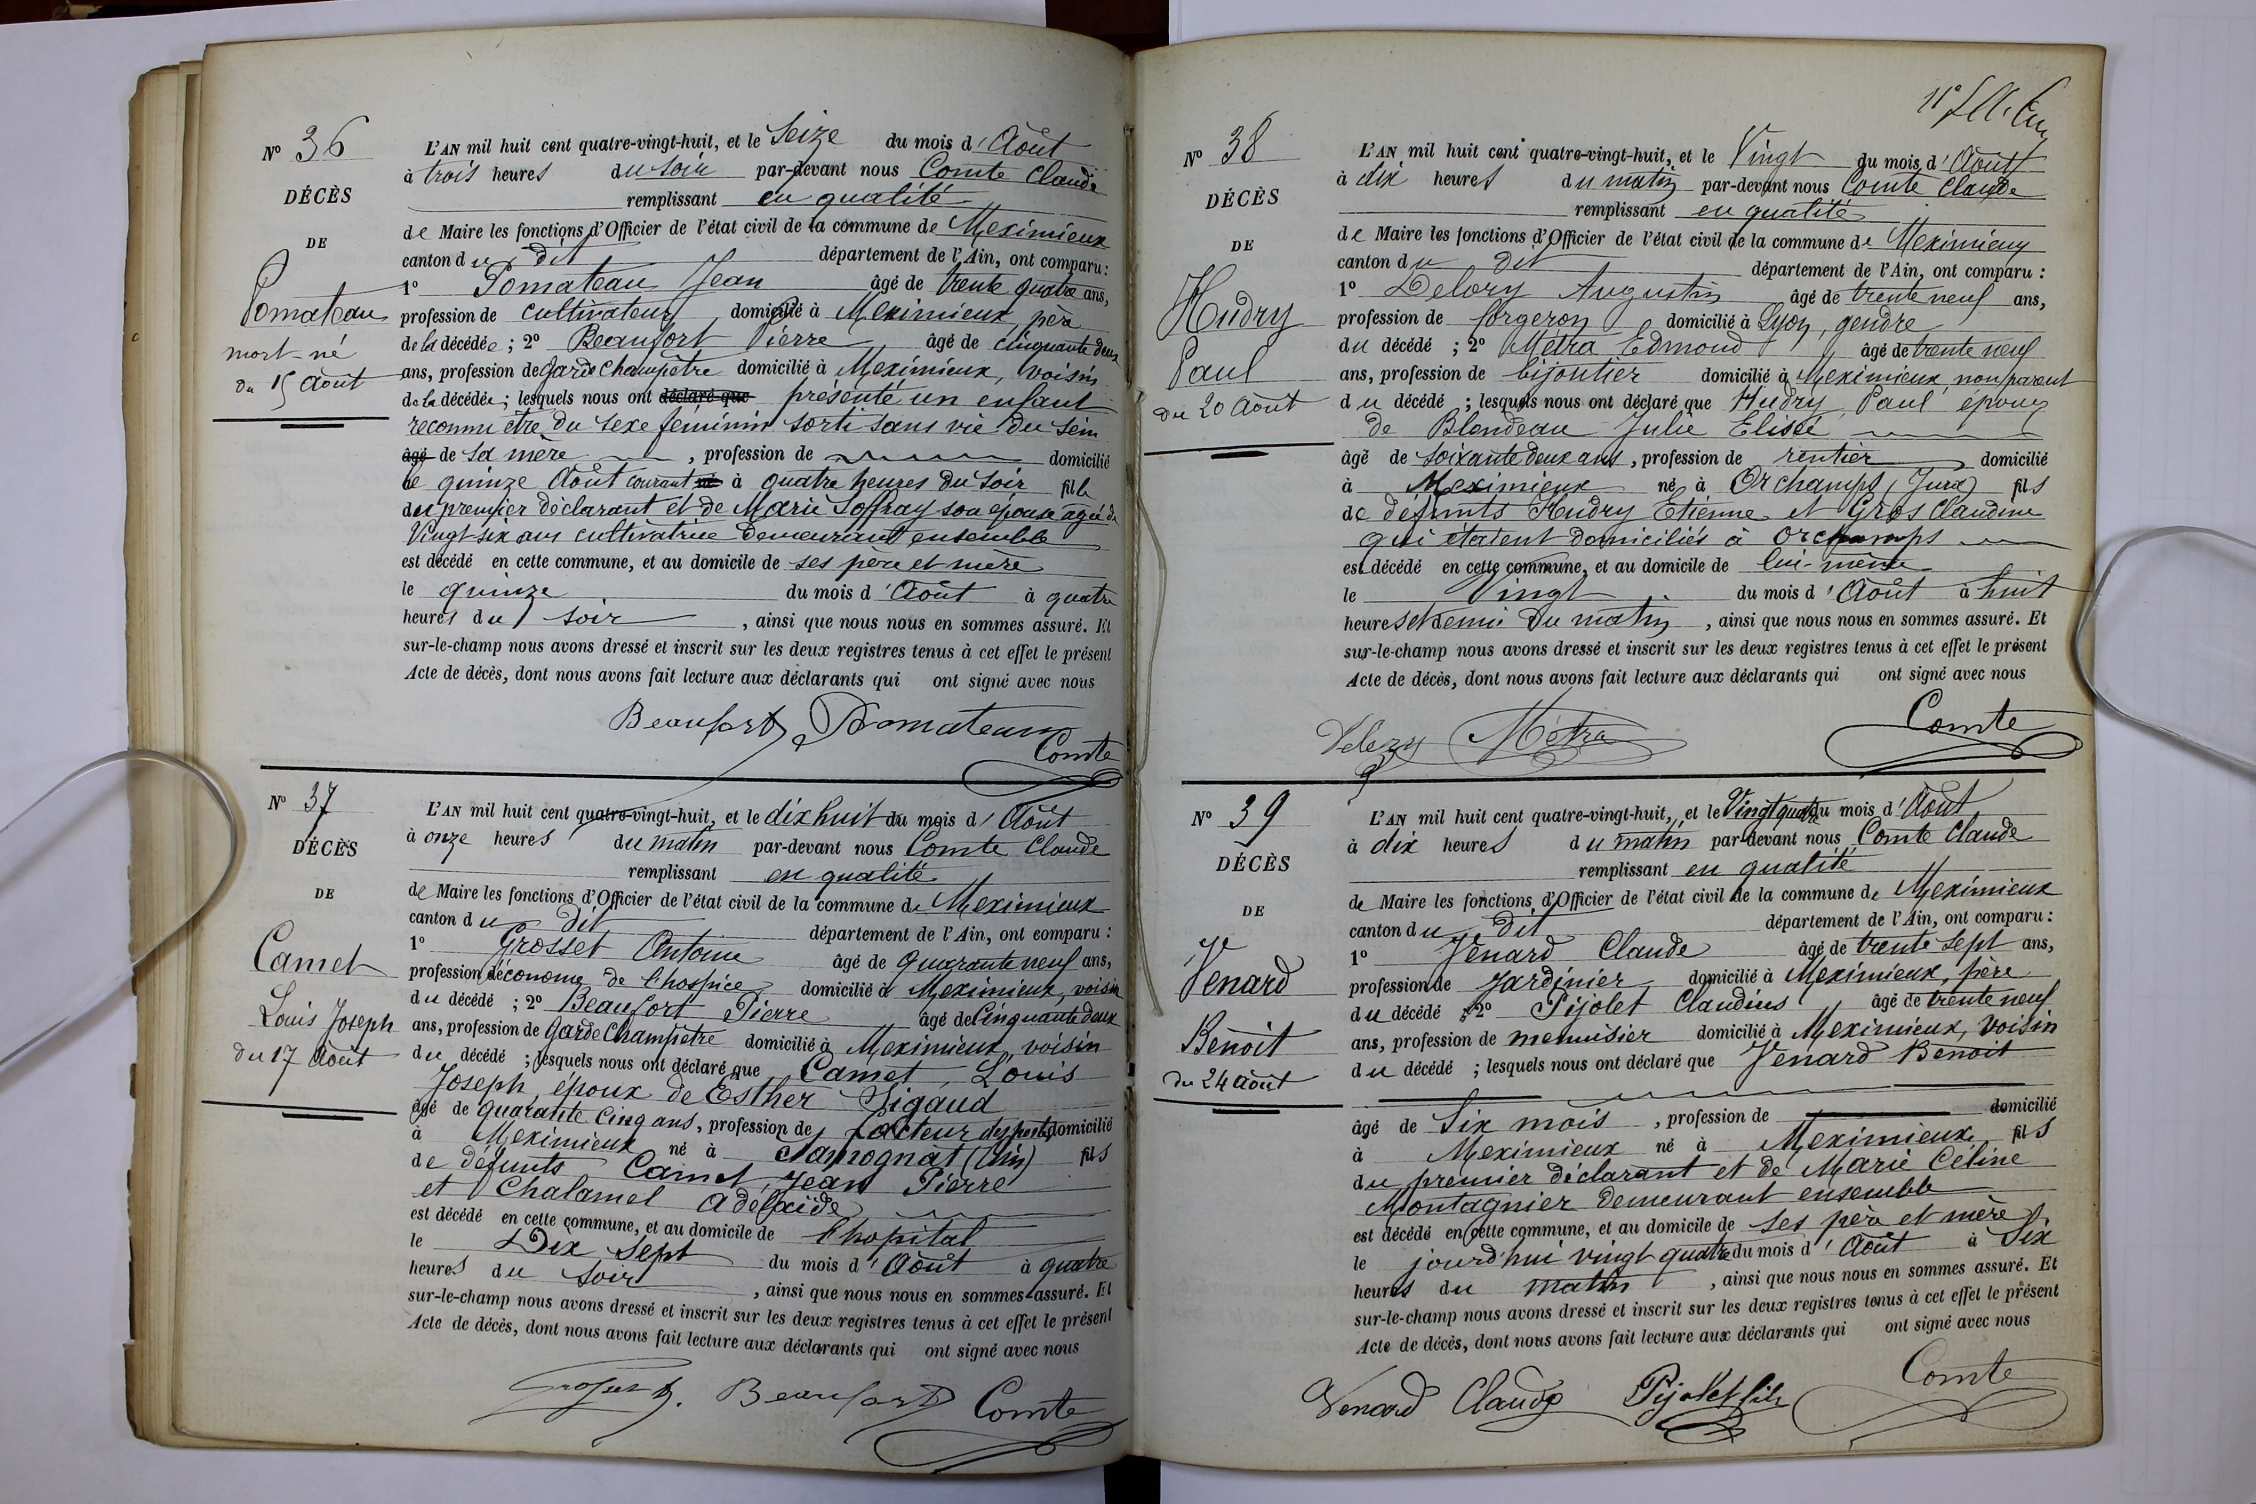 N° 36
DÉCÈS
DE
Pomateau
mort-né
du 15 Août
L'AN mil huit cent quatre-vingt-huit, et le Seize du mois d'Août
à trois heures du soir par-devant nous Comte Claude
remplissant en qualité
de Maire les fonctions d'Officier de l'état civil de la commune de Meximieux
canton du dit département de l'Ain, ont comparu :
1° Pomateau Jean âgé de trente quatre ans,
profession de cultivateur domicilié à Meximieux, père
de la décédée ; 2° Beaufort Pierre âgé de cinquante deux
ans, profession de garde Champêtre domicilié à Meximieux, voisin
de la décédée ; lesquels nous ont déclaré que présenté un enfant
reconnu être du sexe féminin sorti sans vie du sein
âgé de sa mère , profession de domicilié
le quinze Août courant né à quatre heures du soir fille
du premier déclarant et de Marie Joffray son épouse agée de
Vingt-six ans cultivatrice demeurant ensemble
est décédé en cette commune, et au domicile de ses père et mère
le quinze du mois d'Août à quatre
heures du soir , ainsi que nous nous en sommes assuré. Et
sur-le-champ nous avons dressé et inscrit sur les deux registres tenus à cet effet le présent
Acte de décès, dont nous avons fait lecture aux déclarants qui ont signé avec nous
Beaufort Pomateau
Comte
N° 37
DÉCÈS
DE
Camet
Louis Joseph
du 17 Août
L'AN mil huit cent quatre-vingt-huit, et le dix huit du mois d'Août
à onze heures du matin par-devant nous Comte Claude
remplissant en qualité
de Maire les fonctions d'Officier de l'état civil de la commune de Meximieux
canton du dit département de l'Ain, ont comparu :
1° Grosset Antoine âgé de quarante neuf ans,
profession d'économe de l'hospice domicilié à Meximieux, voisin
du décédé ; 2° Beaufort Pierre âgé de Cinquante deux
ans, profession de Garde Champêtre domicilié à Meximieux, voisin
du décédé ; lesquels nous ont déclaré que Camet, Louis
Joseph, époux de Esther Rigaud
âgé de quarante cinq ans, profession de facteur des postes domicilié
à Meximieux né à Samognat (Ain) fils
de défunts Camet, Jean Pierre
et Chalamel Adélaïde
est décédé en cette commune, et au domicile de l'hopital
le Dix Sept du mois d'Août à quatre
heures du soir , ainsi que nous nous en sommes assuré. Et
sur-le-champ nous avons dressé et inscrit sur les deux registres tenus à cet effet le présent
Acte de décès, dont nous avons fait lecture aux déclarants qui ont signé avec nous
Beaufort Comte
N° 38
DÉCÈS
DE
Hudry
Paul
du 20 Août
L'AN mil huit cent quatre-vingt-huit, et le Vingt du mois d'Août
à dix heures du matin par-devant nous Comte Claude
remplissant en qualité
de Maire les fonctions d'Officier de l'état civil de la commune de Meximieux
canton du dit département de l'Ain, ont comparu :
1° Delory Augustin âgé de trente neuf ans,
profession de forgeron domicilié à Lyon, gendre
du décédé ; 2° Métra Edmond âgé de trente neuf
ans, profession de bijoutier domicilié à Meximieux, non parent
du décédé ; lesquels nous ont déclaré que Hudry, Paul époux
de Blondeau Julie Elisée
âgé de soixante deux ans, profession de rentier domicilié
à Meximieux né à Orchamps (Jura) fils
de défunts Hudry Etienne et Gros Claudine
qui étaient domiciliés à Orchamps
est décédé en cette commune, et au domicile de lui-même
le Vingt du mois d'Août à huit
heures et demie du matin , ainsi que nous nous en sommes assuré. Et
sur-le-champ nous avons dressé et inscrit sur les deux registres tenus à cet effet le présent
Acte de décès, dont nous avons fait lecture aux déclarants qui ont signé avec nous
Métra Comte
N° 39
DÉCÈS
DE
Venard
Benoit
du 24 Août
L'AN mil huit cent quatre-vingt-huit, et le Vingt quatre du mois d'Août
à dix heures du matin par-devant nous Comte Claude
remplissant en qualité
de Maire les fonctions d'Officier de l'état civil de la commune de Meximieux
canton du dit département de l'Ain, ont comparu :
1° Venard Claude âgé de trente sept ans,
profession de Jardinier domicilié à Meximieux, père
du décédé ; 2° Pijolet Claudius âgé de trente neuf
ans, profession de menuisier domicilié à Meximieux, voisin
du décédé ; lesquels nous ont déclaré que Venard Benoit
âgé de Six mois , profession de domicilié
à Meximieux né à Meximieux fils
du premier déclarant et de Marie Céline
Montagnier demeurant ensemble
est décédé en cette commune, et au domicile de ses père et mère
le jourd'hui vingt quatre du mois d'Août à Six
heures du matin , ainsi que nous nous en sommes assuré. Et
sur-le-champ nous avons dressé et inscrit sur les deux registres tenus à cet effet le présent
Acte de décès, dont nous avons fait lecture aux déclarants qui ont signé avec nous
Venard Claude Pijolet fils Comte